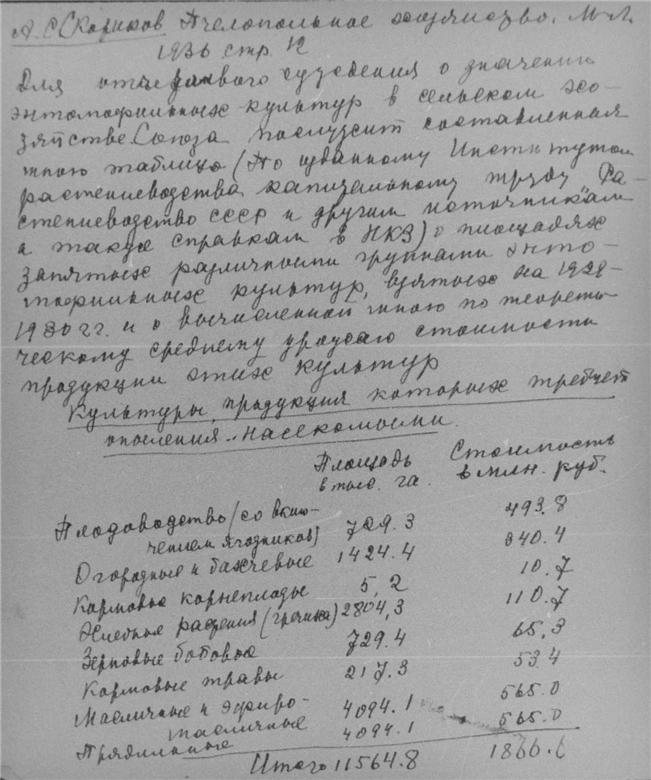 А. С. Скориков Пчелопольное хозяйство. М-Л.
1936 стр. 12
Для суждения о значении
энтомофильных культур в сельском хо-
зяйстве Союза послужит составленная
мною таблица (по изданному Институтом
растениеводства капитальному труду "Ра-
стениеводство СССР" и другим источникам
а также справкам в НКЗ) о площадях
занятых различными группами энто-
мофильных культур, взятых на 1929-
1930 гг. и о вычисленной мною по теорети-
ческому среднему урожаю стоимости
продукции этих культур
Культуры, продукция которых требует
опыления насекомыми.
Площадь Стоимость
в тыс. га. в млн. руб.
Плодоводство (со вклю-
чением ягодников) 729.3 493.8
Огородные и бахчевые 1424.4 340.4
Кормовые корнеплоды 5,2 10.7
Хлебные растения (гречиха) 2804,3 110.7
Зерновые бобовые 729.4 65,3
Кормовые травы 217.3 53.4
Масличные и эфиро-
масличные 4094.1 565.0
Прядильные 4094.1 565.0
Итого 11564.8